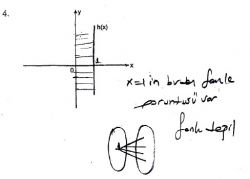 4.
y
h(x)
0 1 x
x=1 in birden fazla
görüntüsü var
fonk değil